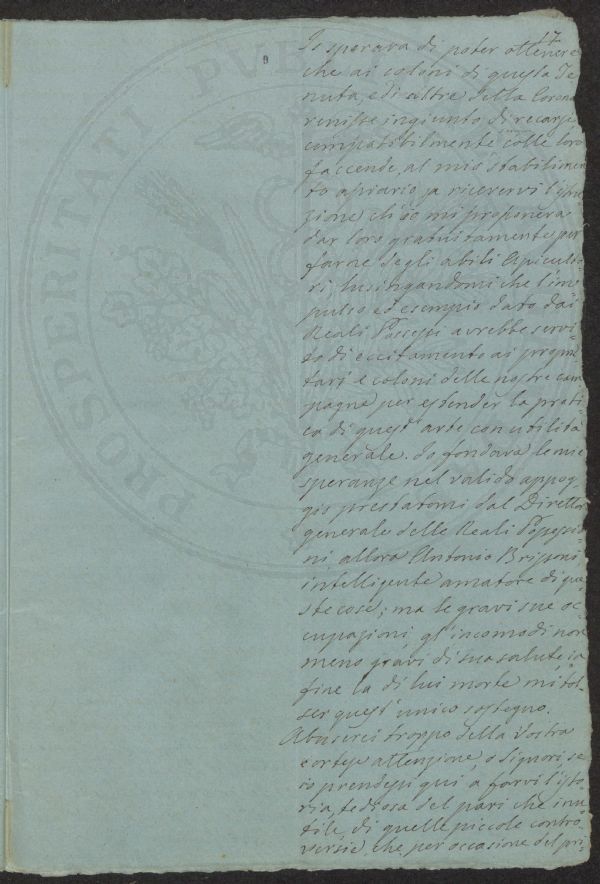 7
Io sperava di poter ottenere
che ai coloni di questa Te-
nuta, e di altre della Corona
venisse ingiunto di recarsi
compatibilmente colle loro
faccende, al mio stabilimen
to apiario a ricevervi l'istru
zione ch'io mi proponeva
dar loro gratuitamente per
farne degli abili Apiculto
ri, lusingandomi che l'im
pulso ed esempio dato dai
Reali Possessi avrebbe servi
to di eccitamento ai proprie
tarj e coloni delle nostre cam
pagne per estender la prati
ca di quest'arte con utilità
generale. Io fondava le mie
speranze nel valido appog
gio prestatomi dal Direttor
generale delle Reali Possessio
ni allora Antonio Bripponi
intelligente amatore di que
ste cose; ma le gravi sue oc
cupazioni, gl'incomodi non
meno gravi di sua salute, in
fine la di lui morte mi tol
ser quest'unico sostegno.
Abuserei troppo della Vostra
cortese attenzione, o Signori, se
io prendessi qui a farvi l'isto
ria, tediosa del pari che inu
tile, di quelle piccole contro
versie, che per occasione del pri-
PROSPERITATI PVBL